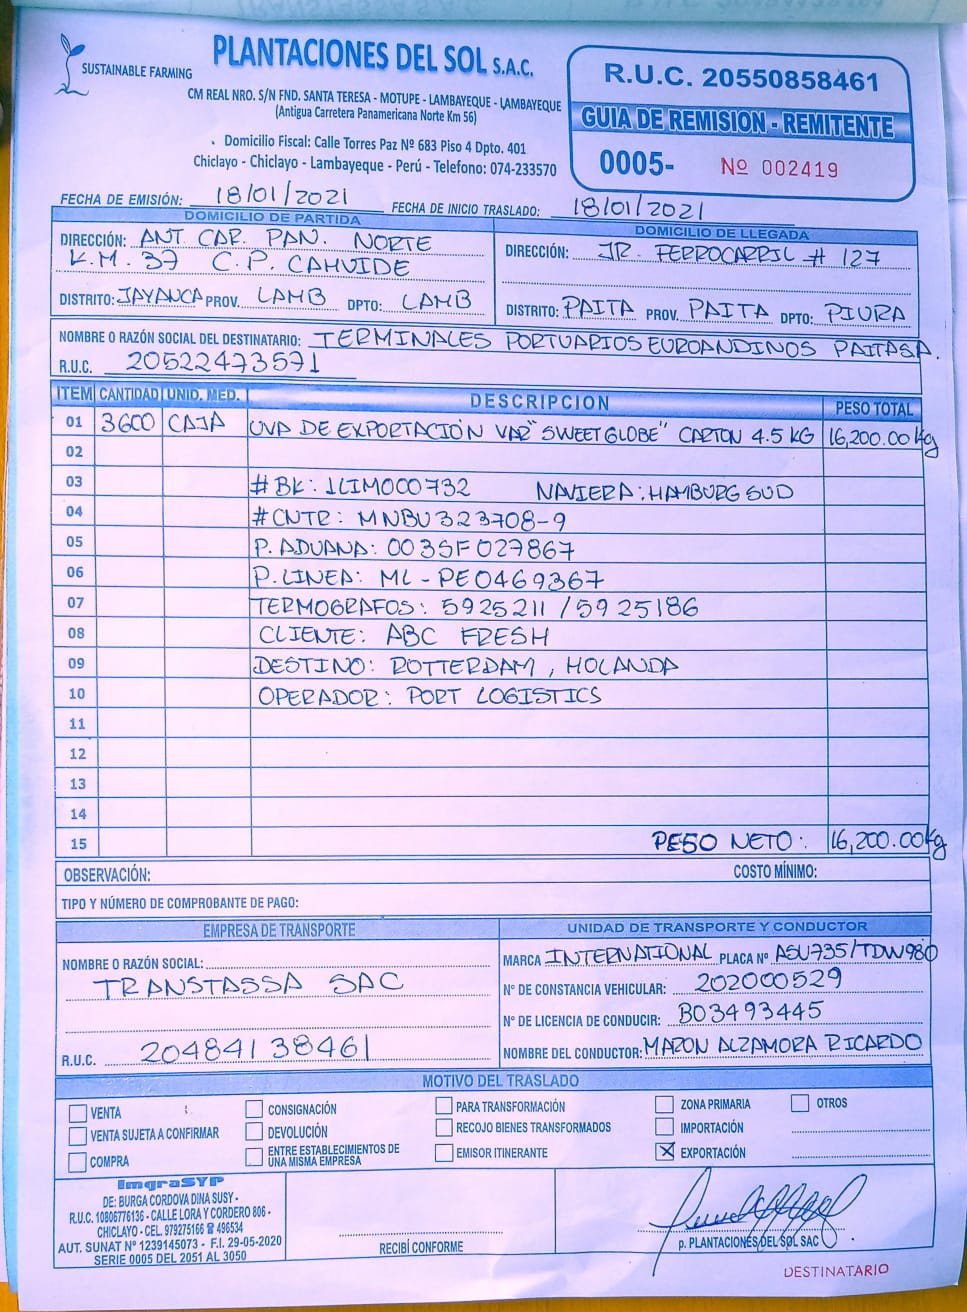 SUSTAINABLE FARMING
PLANTACIONES DEL SOL S.A.C.
CM REAL NRO. S/N FND. SANTA TERESA - MOTUPE - LAMBAYEQUE - LAMBAYEQUE
(Antigua Carretera Panamericana Norte Km 56)
Domicilio Fiscal: Calle Torres Paz Nº 683 Piso 4 Dpto. 401
Chiclayo - Chiclayo - Lambayeque - Perú - Telefono: 074-233570
R.U.C. 20550858461
GUIA DE REMISION - REMITENTE
0005- Nº 002419
FECHA DE EMISIÓN: 18/01/2021 FECHA DE INICIO TRASLADO: 18/01/2021
DOMICILIO DE PARTIDA
DIRECCIÓN: ANT. CAR. PAN. NORTE
K.M. 37 C.P. CAHUIDE
DISTRITO: JAYANCA PROV. LAMB DPTO: LAMB
DOMICILIO DE LLEGADA
DIRECCIÓN: JR. FERROCARRIL # 127
DISTRITO: PAITA PROV. PAITA DPTO: PIURA
NOMBRE O RAZÓN SOCIAL DEL DESTINATARIO: TERMINALES PORTUARIOS EUROANDINOS PAITA SA.
R.U.C. 20522473571
ITEM CANTIDAD UNID. MED. DESCRIPCION PESO TOTAL
01 3600 CAJA UVA DE EXPORTACIÓN VAR "SWEET GLOBE" CARTON 4.5 KG 16,200.00 Kg
02
03 # BK: 1LIM000732 NAVIERA: HAMBURG SUD
04 # CNTR: MNBU 323708-9
05 P. ADUANA: 003SF027867
06 P. LINEA: ML - PE0469367
07 TERMOGRAFOS: 5925211 / 5925186
08 CLIENTE: ABC FRESH
09 DESTINO: ROTTERDAM, HOLANDA
10 OPERADOR: PORT LOGISTICS
11
12
13
14
15 PESO NETO: 16,200.00 Kg
OBSERVACIÓN: COSTO MÍNIMO:
TIPO Y NÚMERO DE COMPROBANTE DE PAGO:
EMPRESA DE TRANSPORTE
NOMBRE O RAZÓN SOCIAL:
TRANSTASSA SAC
R.U.C. 20484138461
UNIDAD DE TRANSPORTE Y CONDUCTOR
MARCA INTERNATIONAL PLACA Nº ASU735/TDW980
Nº DE CONSTANCIA VEHICULAR: 202000529
Nº DE LICENCIA DE CONDUCIR: B03493445
NOMBRE DEL CONDUCTOR: MARON ALZAMORA RICARDO
MOTIVO DEL TRASLADO
VENTA CONSIGNACIÓN PARA TRANSFORMACIÓN ZONA PRIMARIA OTROS
VENTA SUJETA A CONFIRMAR DEVOLUCIÓN RECOJO BIENES TRANSFORMADOS IMPORTACIÓN
COMPRA ENTRE ESTABLECIMIENTOS DE EMISOR ITINERANTE X EXPORTACIÓN
UNA MISMA EMPRESA
ImgraSYP
DE: BURGA CORDOVA DINA SUSY -
R.U.C. 10806776136 - CALLE LORA Y CORDERO 806 -
CHICLAYO - CEL. 979275166 ☎ 496534
AUT. SUNAT Nº 1239145073 - F.I. 29-05-2020
SERIE 0005 DEL 2051 AL 3050
RECIBÍ CONFORME
p. PLANTACIONES DEL SOL SAC
DESTINATARIO